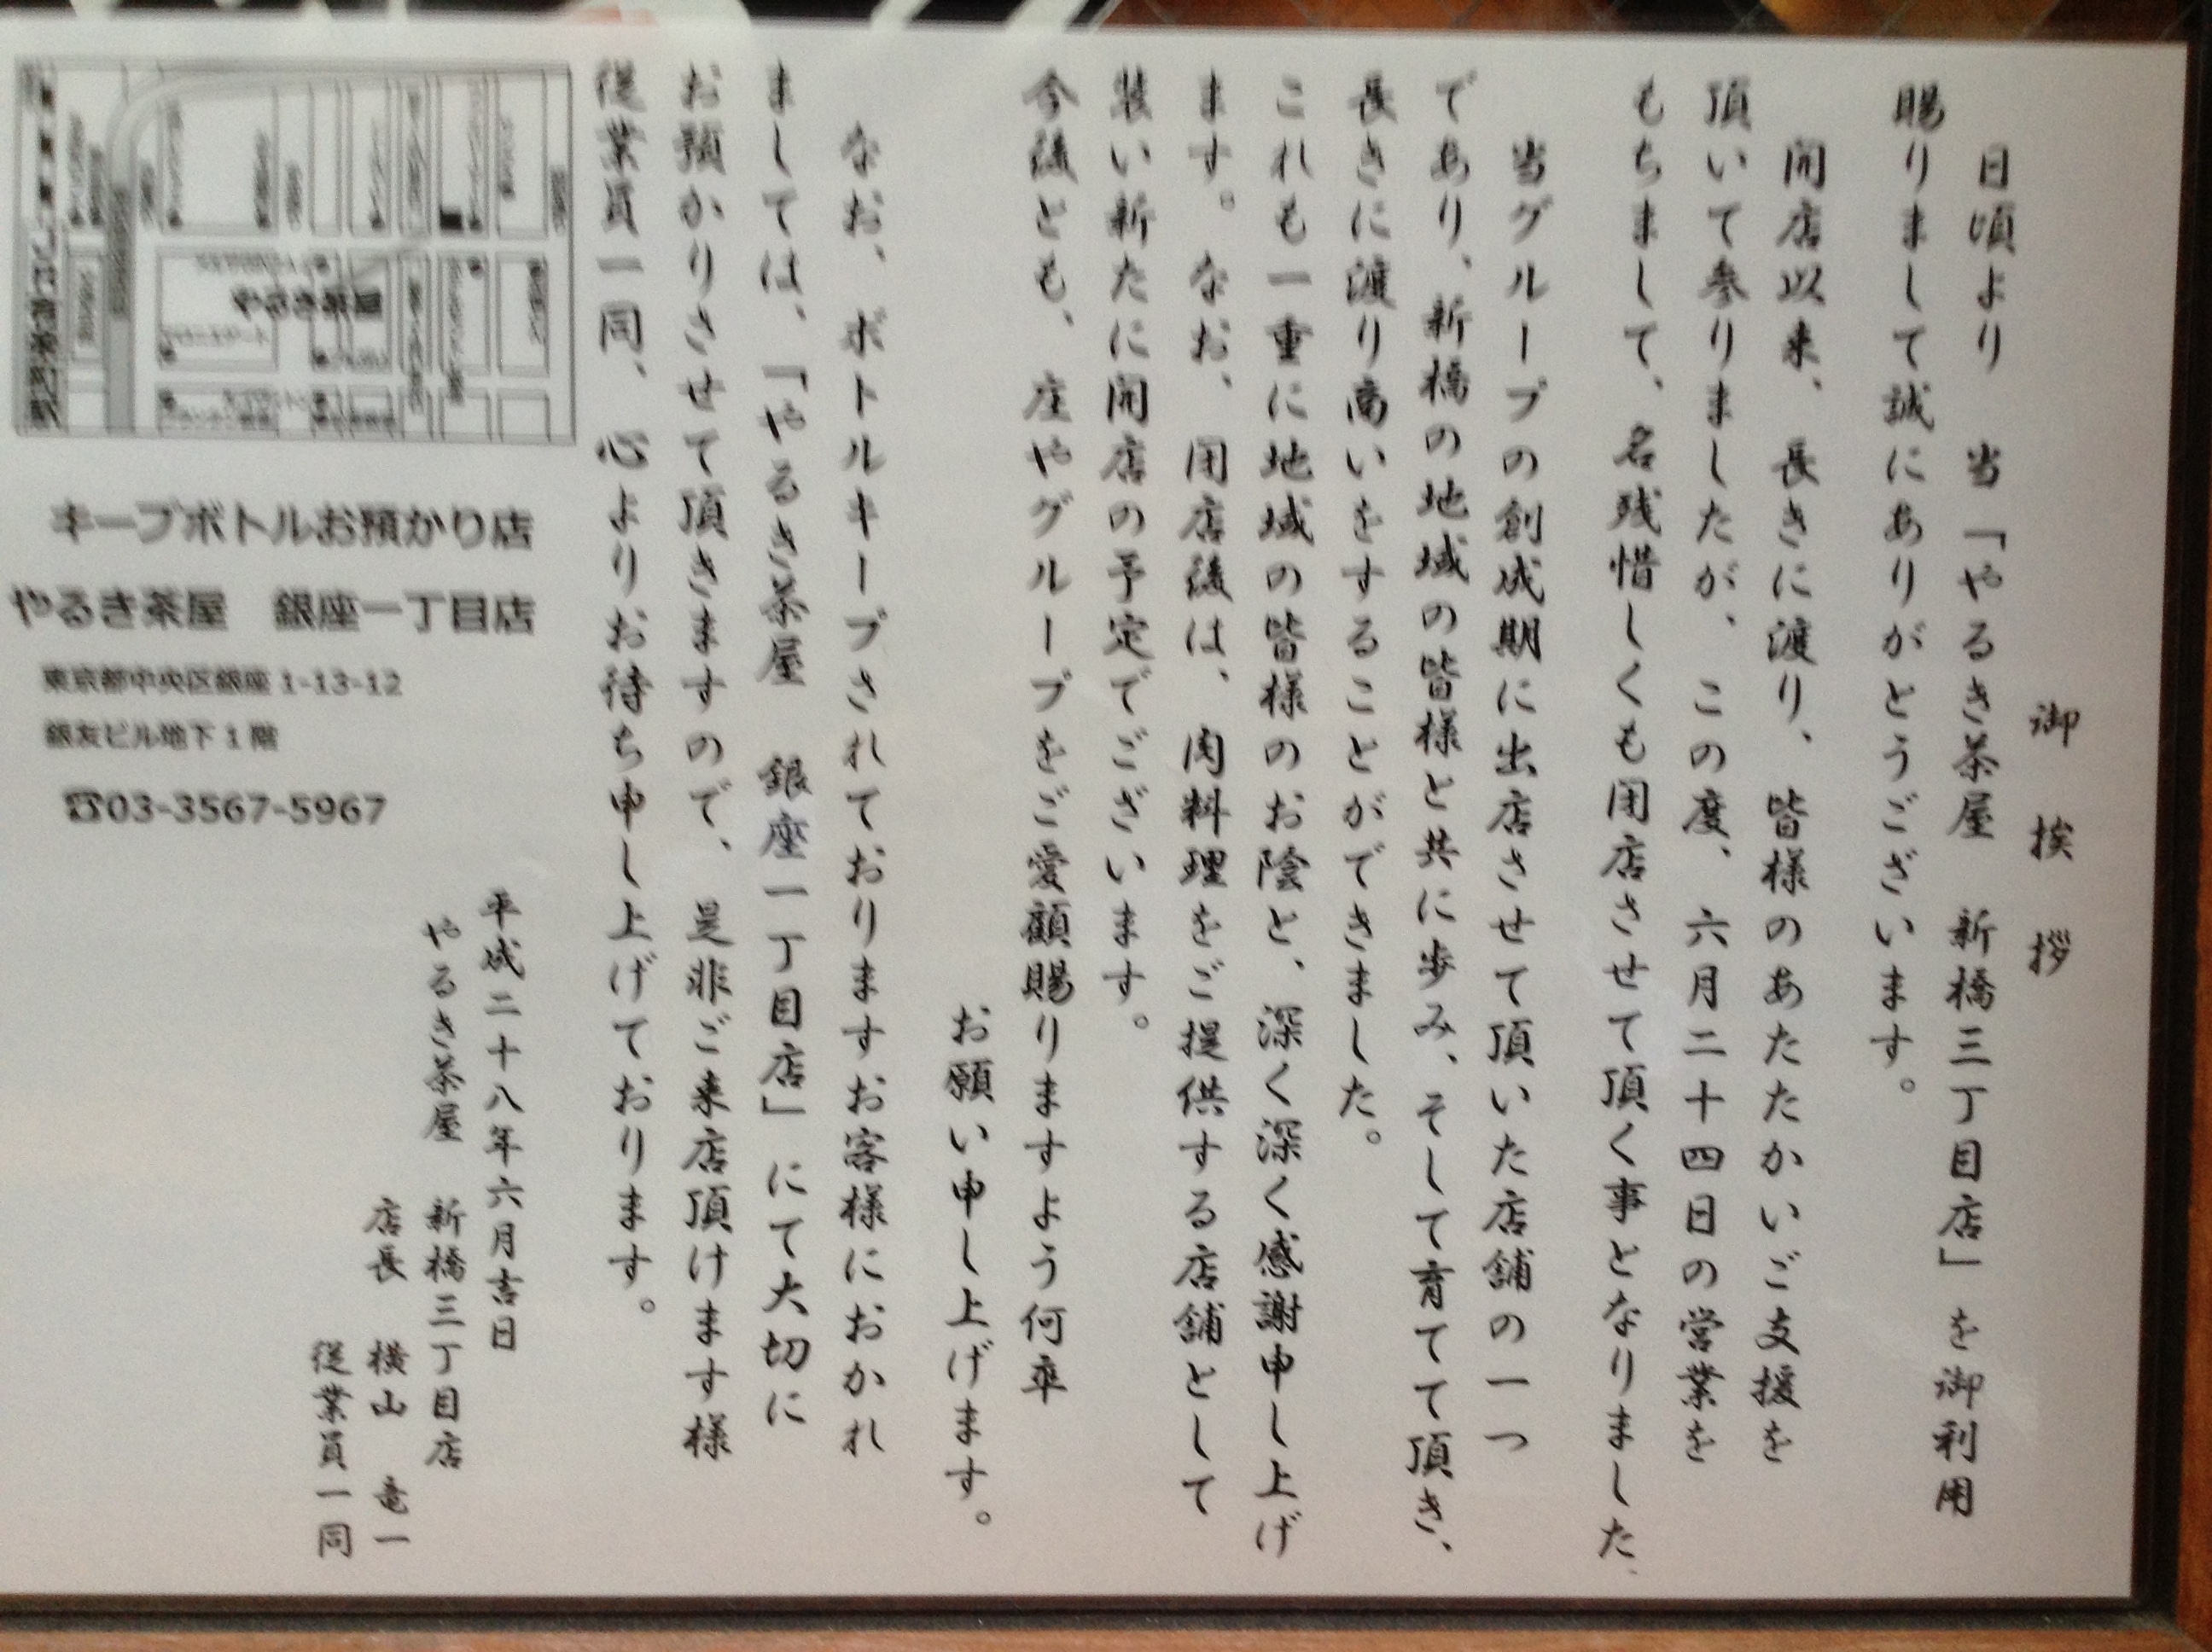 御挨拶
日頃より 当「やるき茶屋 新橋三丁目店」を御利用
賜りまして誠にありがとうございます。
開店以来、長きに渡り、皆様のあたたかいご支援を
頂いて参りましたが、この度、六月二十四日の営業を
もちまして、名残惜しくも閉店させて頂く事となりました。
当グループの創成期に出店させて頂いた店舗の一つ
であり、新橋の地域の皆様と共に歩み、そして育てて頂き、
長きに渡り商いをすることができました。
これも一重に地域の皆様のお陰と、深く深く感謝申し上げ
ます。なお、閉店後は、肉料理をご提供する店舗として
装い新たに開店の予定でございます。
今後とも、庄やグループをご愛顧賜りますよう何卒
お願い申し上げます。
なお、ボトルキープされておりますお客様におかれ
ましては、「やるき茶屋 銀座一丁目店」にて大切に
お預かりさせて頂きますので、是非ご来店頂けます様
従業員一同、心よりお待ち申し上げております。
キープボトルお預かり店
やるき茶屋 銀座一丁目店
東京都中央区銀座1-13-12
銀友ビル地下1階
☎03-3567-5967
平成二十八年六月吉日
やるき茶屋 新橋三丁目店
店長 横山 竜一
従業員一同